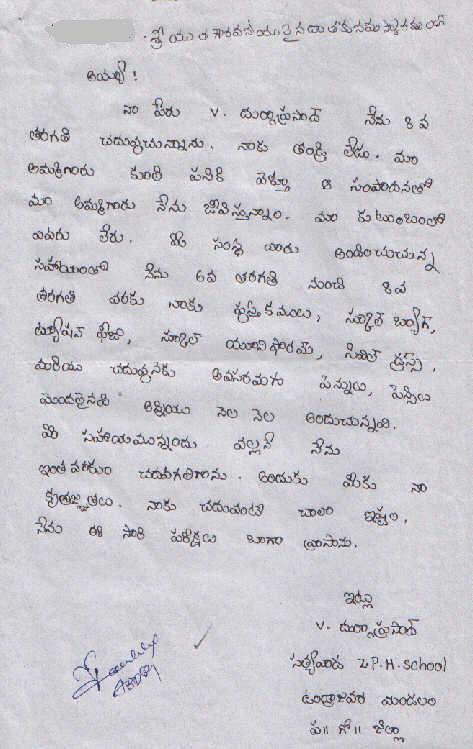 శ్రీ యుత గౌరవనీయులైన దాతకు నమస్కారములతో
అయ్యా!
నా పేరు V. దుర్గాప్రసాద్ నేను 8 వ
తరగతి చదువుచున్నాను. నాకు తండ్రి లేడు. మా
అమ్మగారు కూలి పనికి వెళ్ళి ఆ సంపాదనతో
మా అమ్మగారు నేను జీవిస్తున్నాం. మా కుటుంబంలో
ఎవరు లేరు. మీ సంస్థ వారు అందించుచున్న
సహాయంతో నేను 6వ తరగతి నుంచి 8 వ
తరగతి వరకు నాకు పుస్తకములు, స్కూల్ బ్యాగ్,
ట్యూషన్ ఫీజు, స్కూల్ యూనిఫారమ్, సివిల్ డ్రస్స్,
మరియు చదువుకునేందుకు అవసరమగు పెన్నులు, పెన్సిలు
మొదలైనవి అన్నియు నెల నెల అందుచున్నవి.
మీ సహాయమున్నందు వల్లనే నేను
ఇంత వరకు చదువగలిగాను. అందుకు మీకు నా
కృతజ్ఞతలు. నాకు చదువంటే చాలా ఇష్టం.
నేను ఈ సారి పరీక్షలు బాగా వ్రాసాను.
ఇట్లు
V. దుర్గాప్రసాద్
సత్యవాడ Z.P.H.School
ఉండ్రాజవరం మండలం
ప॥ గో॥ జిల్లా